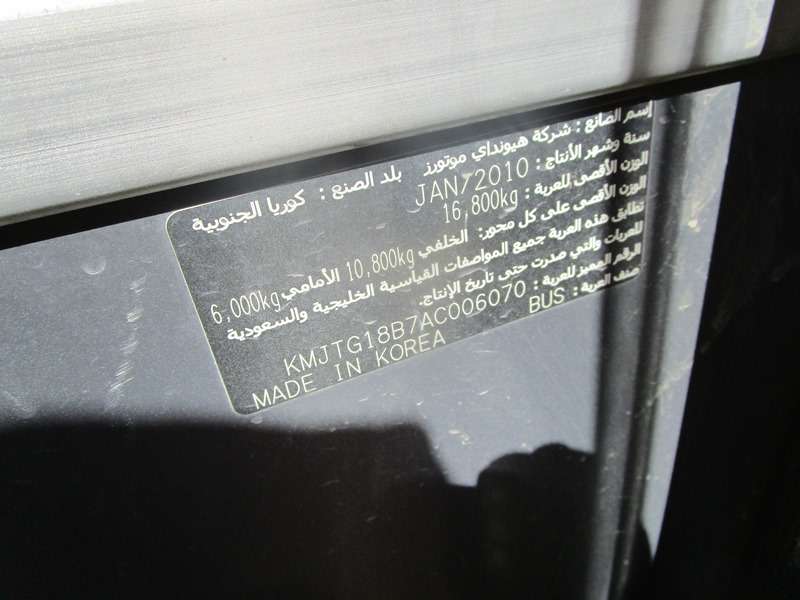 إسم الصانع : شركة هيونداي موتورز بلد الصنع : كوريا الجنوبية
سنة وشهر الأنتاج : JAN/2010
الوزن الأقصى للعربة : 16,800kg
الوزن الأقصى على كل محور: الخلفي 10,800kg الأمامي 6,000kg
تطابق هذه العربة جميع المواصفات القياسية الخليجية والسعودية
للعربات والتي صدرت حتى تاريخ الإنتاج.
الرقم المميز للعربة : KMJTG18B7AC006070
صنف العربة : BUS
MADE IN KOREA